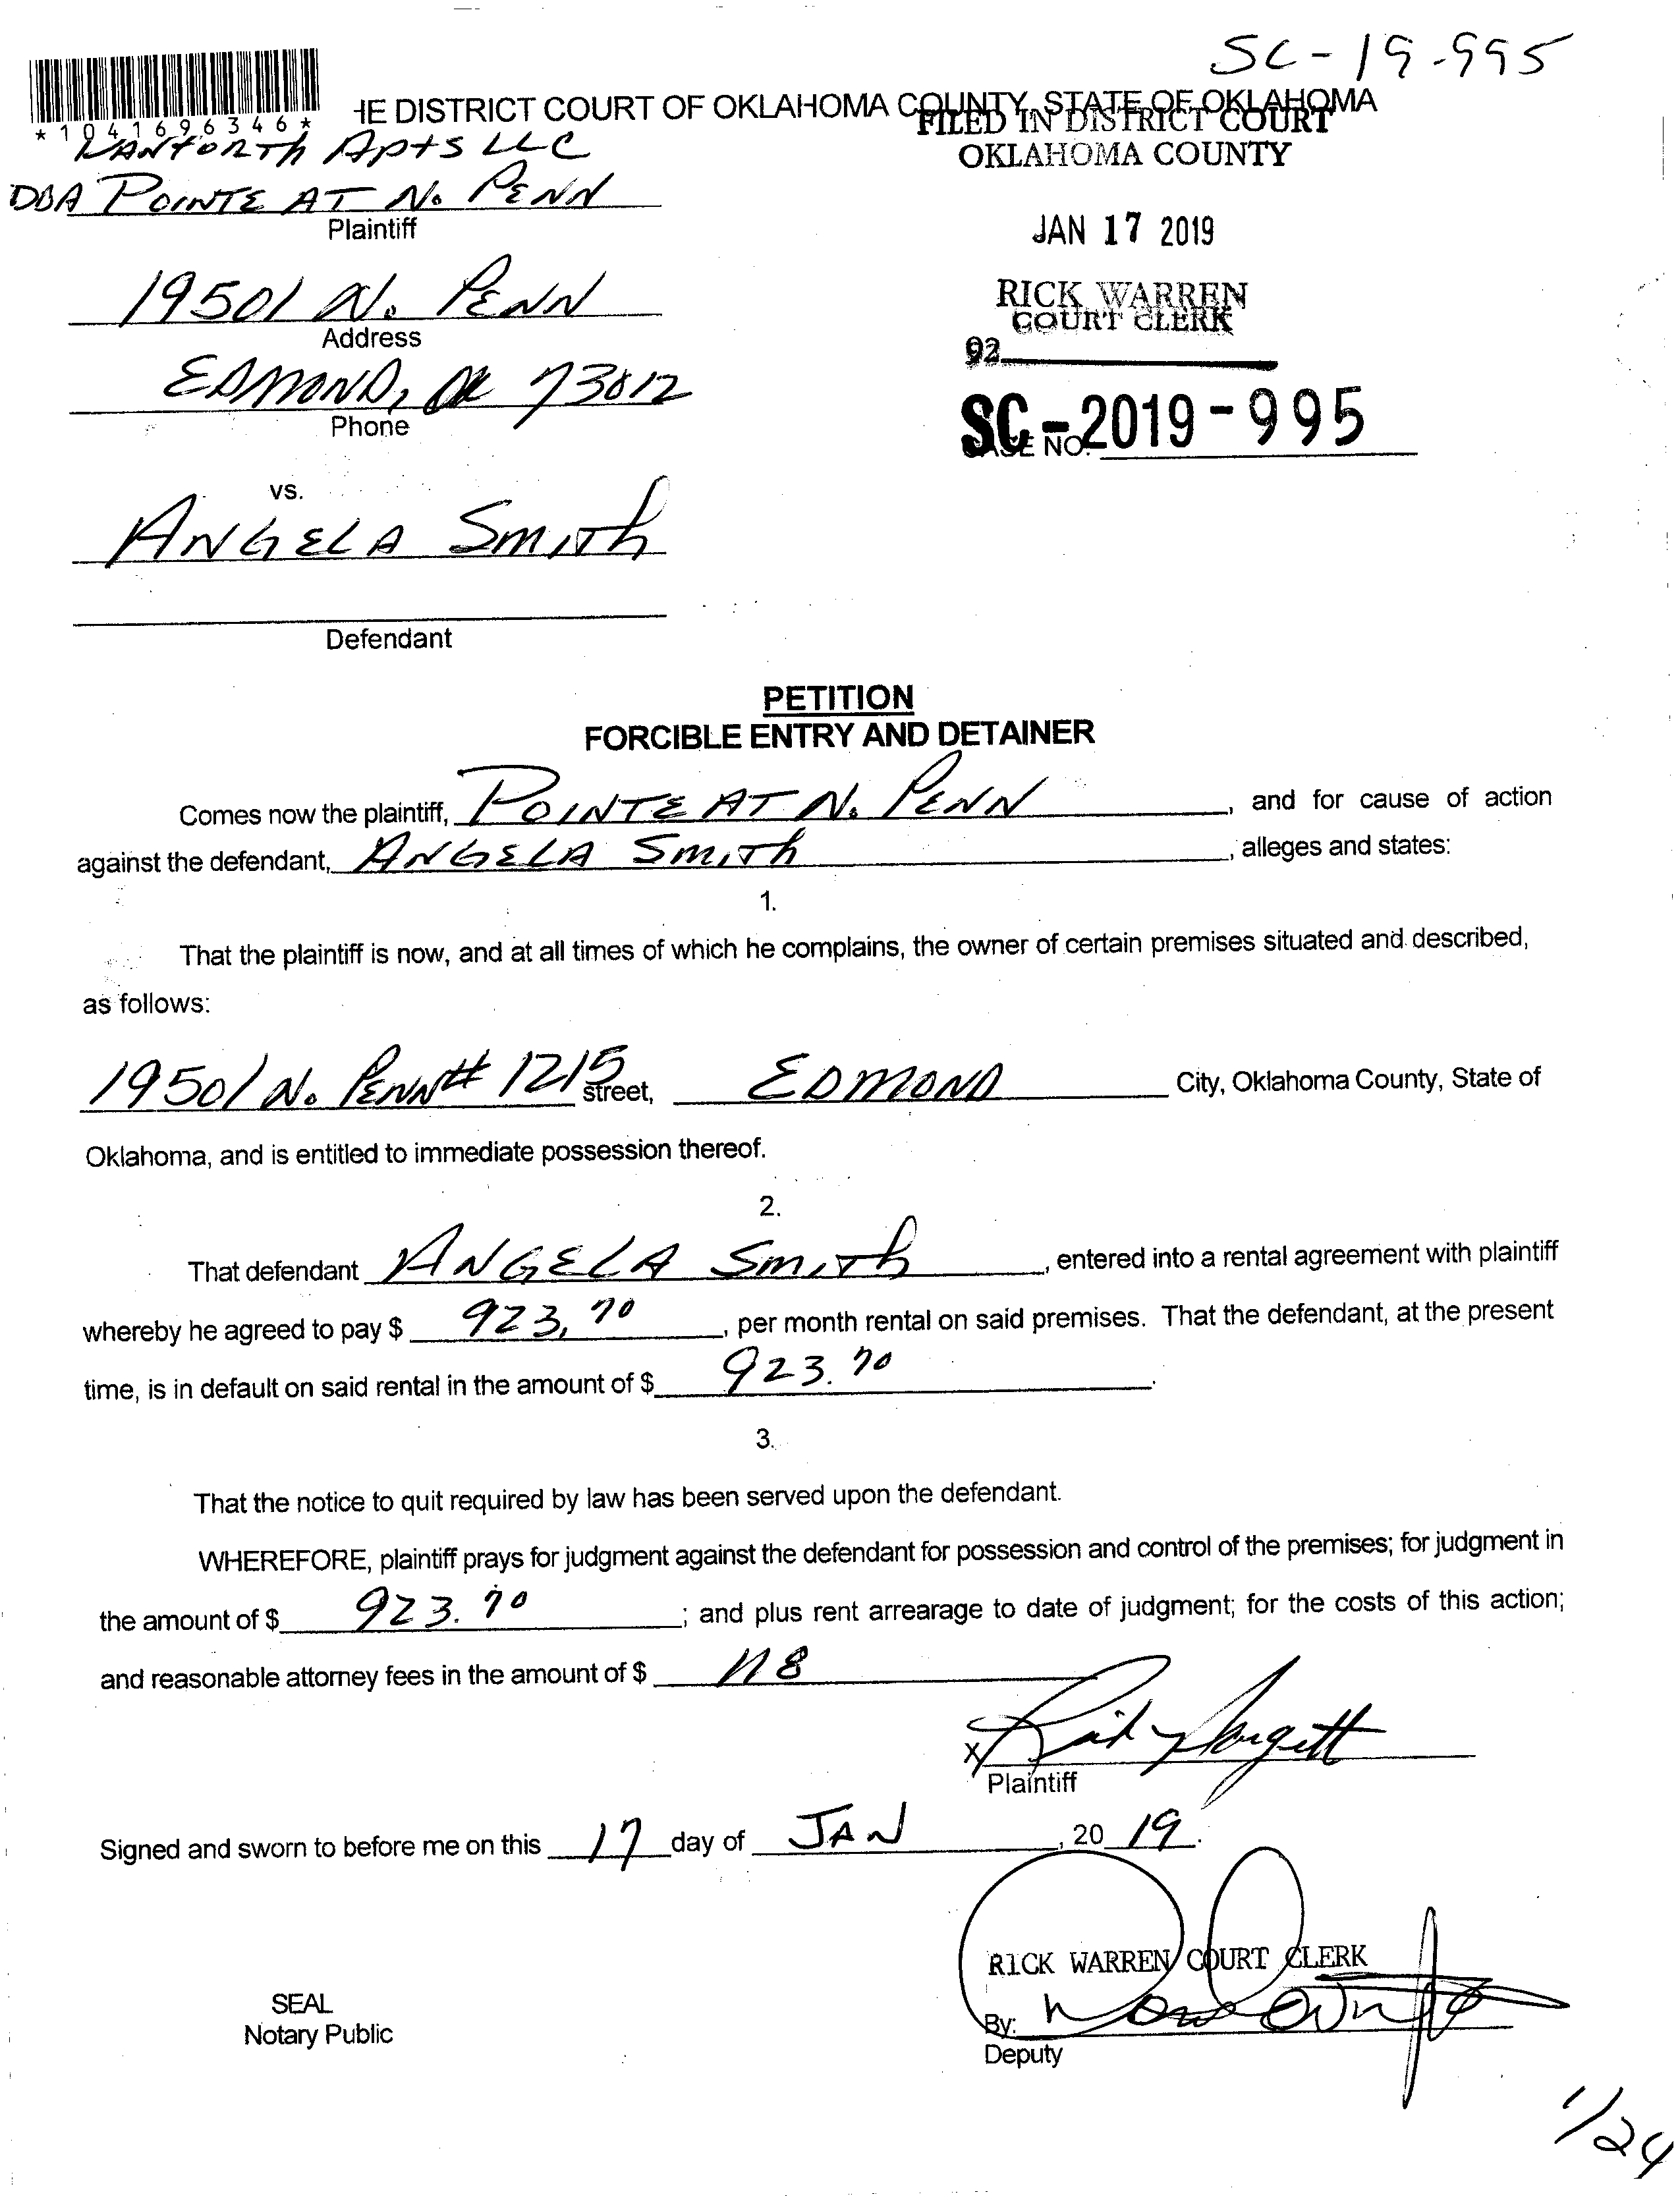 SC-19-995
*1041696346*
HE DISTRICT COURT OF OKLAHOMA COUNTY, STATE OF OKLAHOMA
FILED IN DISTRICT COURT
OKLAHOMA COUNTY
Apts LLC
DBA POINTE AT N. PENN
Plaintiff
JAN 17 2019
19501 N. PENN
Address
RICK WARREN
COURT CLERK
EDMOND, OK 73012
Phone
92
SC-2019-995
CASE NO.
vs.
ANGELA SMITH
Defendant
PETITION
FORCIBLE ENTRY AND DETAINER
Comes now the plaintiff, POINTE AT N. PENN, and for cause of action
against the defendant, ANGELA SMITH, alleges and states:
1.
That the plaintiff is now, and at all times of which he complains, the owner of certain premises situated and described,
as follows:
19501 N. PENN # 1215 street, EDMOND City, Oklahoma County, State of
Oklahoma, and is entitled to immediate possession thereof.
2.
That defendant ANGELA SMITH, entered into a rental agreement with plaintiff
whereby he agreed to pay $ 923.70, per month rental on said premises. That the defendant, at the present
time, is in default on said rental in the amount of $ 923.70.
3.
That the notice to quit required by law has been served upon the defendant.
WHEREFORE, plaintiff prays for judgment against the defendant for possession and control of the premises; for judgment in
the amount of $ 923.70; and plus rent arrearage to date of judgment; for the costs of this action;
and reasonable attorney fees in the amount of $
X
Plaintiff
Signed and sworn to before me on this 17 day of JAN, 20 19.
RICK WARREN COURT CLERK
SEAL
Notary Public
By:
Deputy
1/24